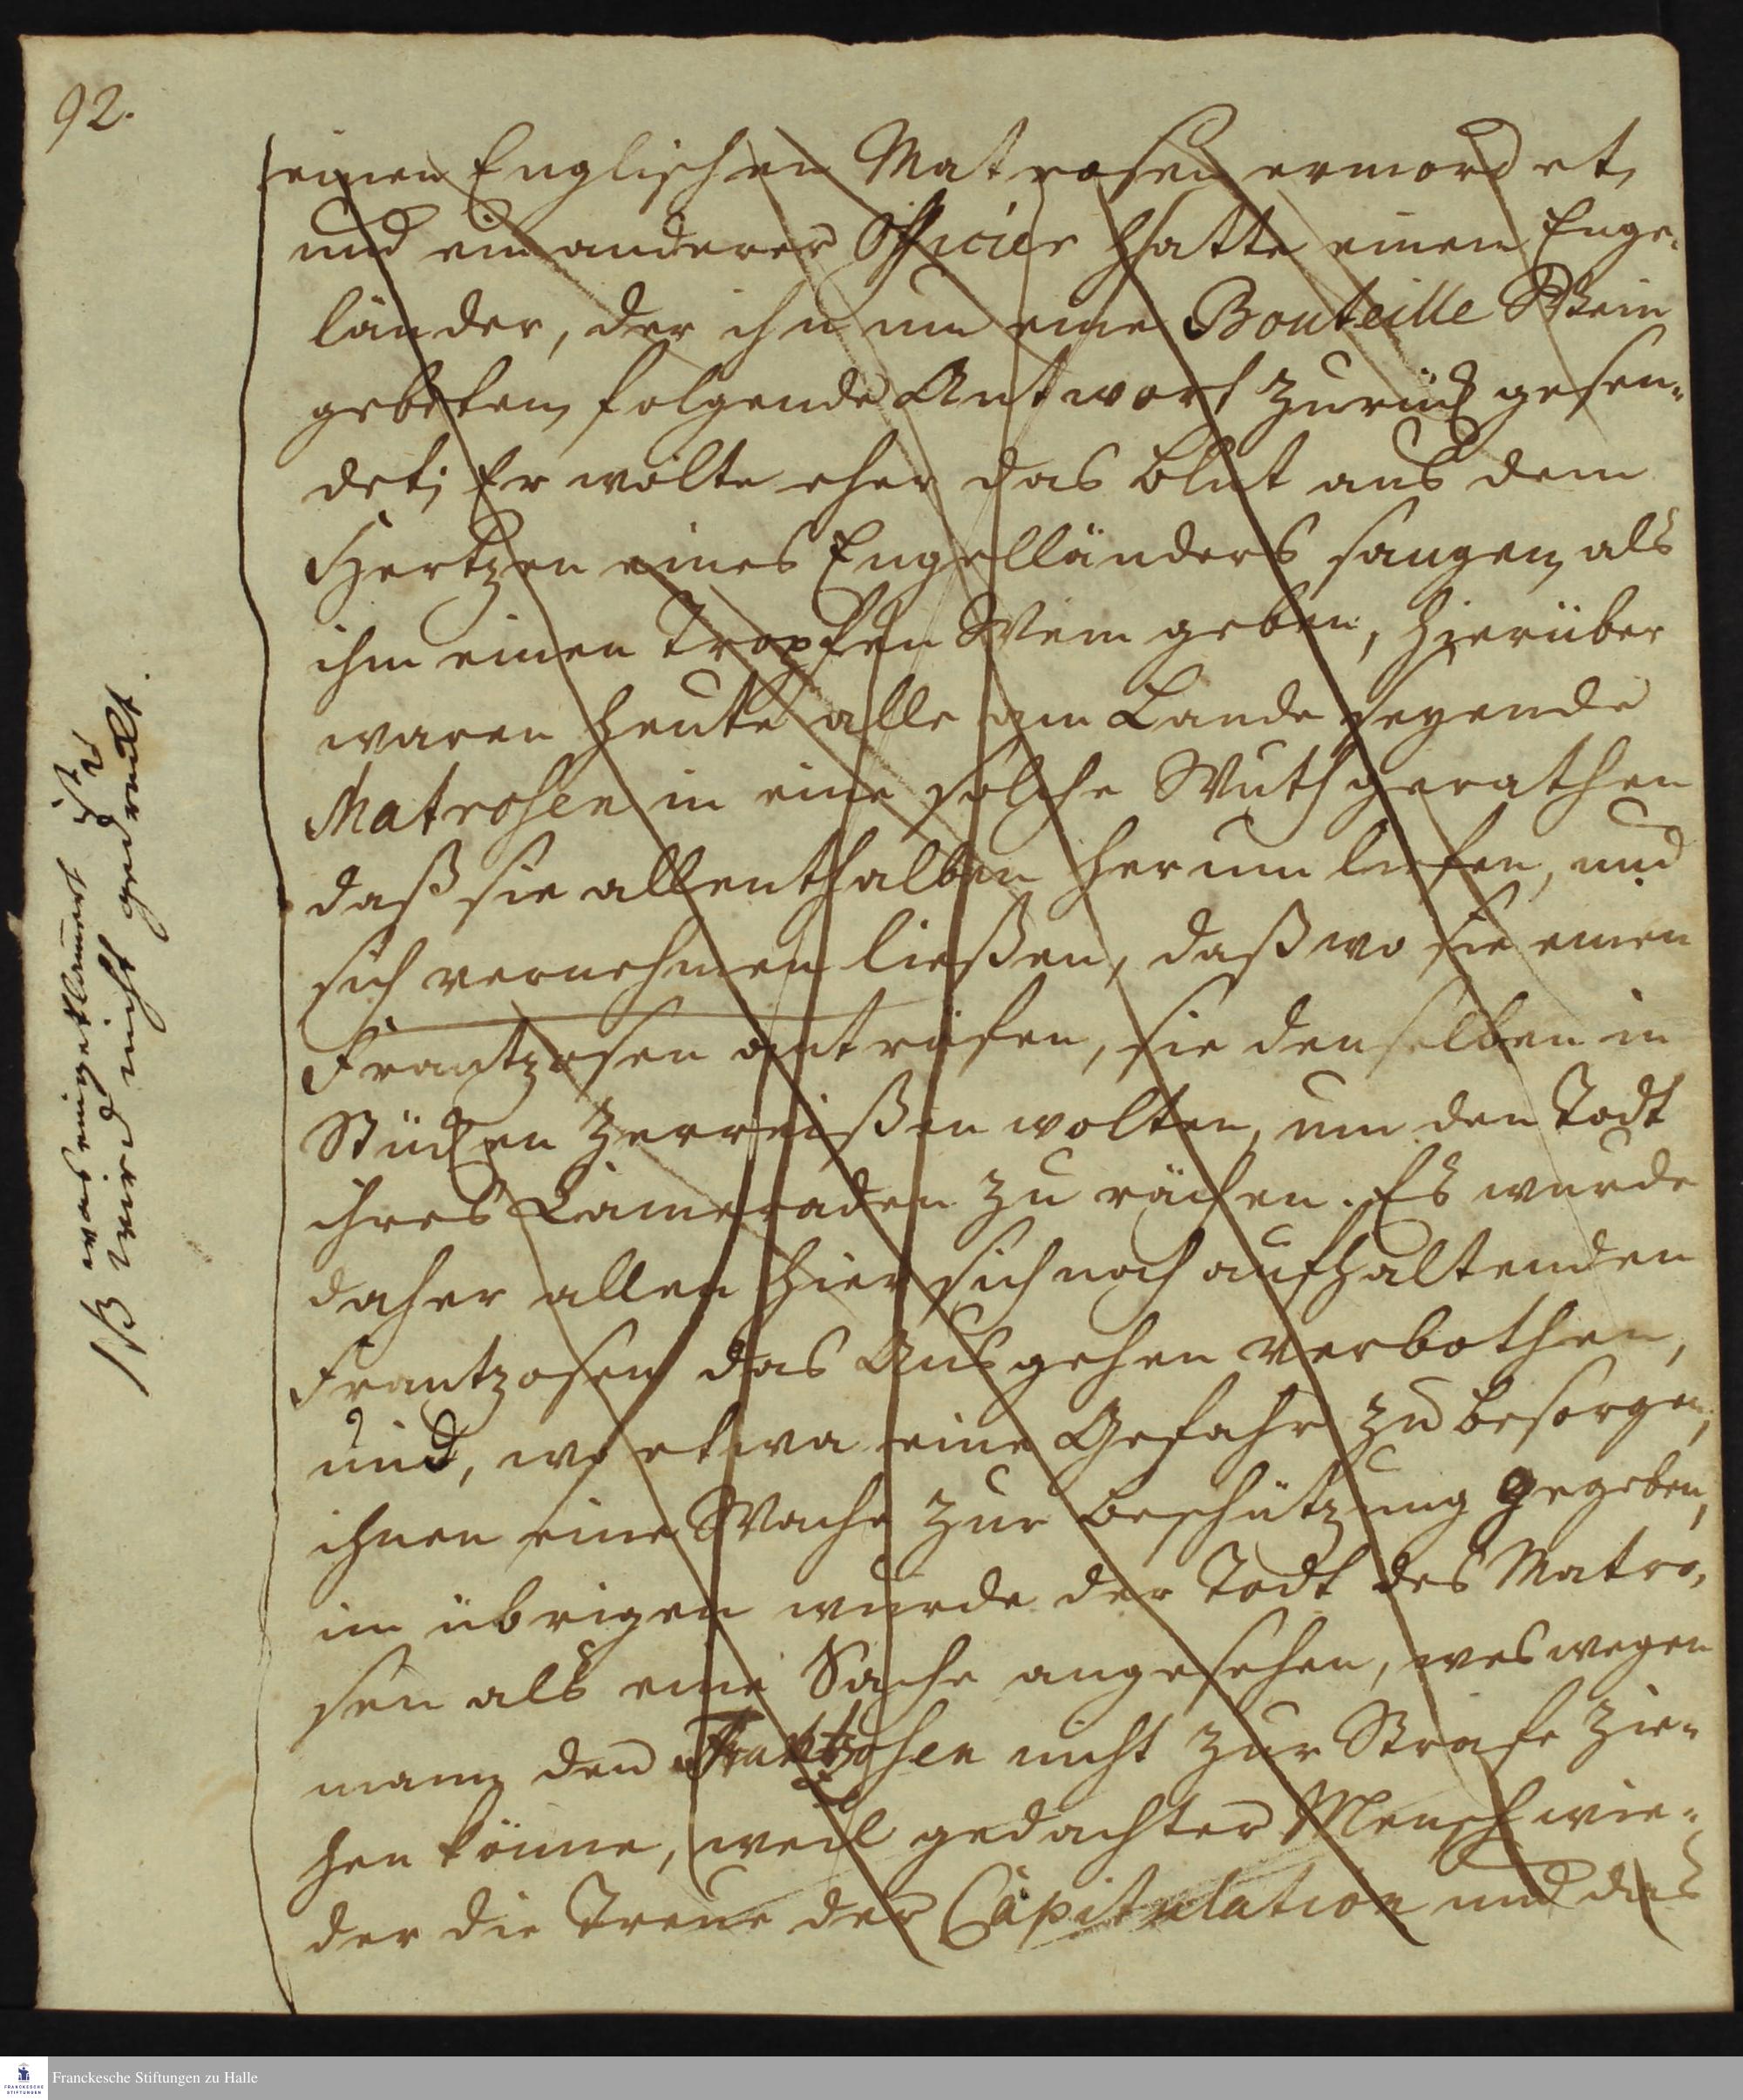 92.
einen Englischen Matrosen ermordet,
und ein anderer Officier hatte einen Enge-
länder, der ihn um eine Bouteille Wein
gebeten, folgende Antwort zurück gesen-
det; Er wolte eher das Blut aus dem
Hertzen eines Engelländers saugen, als
ihm einen Tropfen Wein geben, hierüber
waren heute alle am Lande seyende
Matrosen in eine solche Wuth gerathen
daß sie allenthalben herum liefen, und
sich vernehmen ließen, daß wo sie einen
Frantzosen anträfen, sie denselben in
Stücken zerreißen wolten, um den Todt
ihres Cameraden zu rächen. Es wurde
daher allen hier sich noch aufhaltenden
Frantzosen das Ausgehen verbothen,
und, wo etwa eine Gefahr zu besorgen,
ihnen eine Wache zur Beschützung gegeben,
im übrigen wurde der Todt des Matro-
sen als eine Sache angesehen, weswegen
man den Frantzosen nicht zur Strafe zie-
hen könne, weil gedachter Mensch wie-
der die Treue der Capitulation und des
was eingeklammert ist
wird nicht gedruckt.
Franckesche Stiftungen zu Halle
FRANCKESCHE
STIFTUNGEN